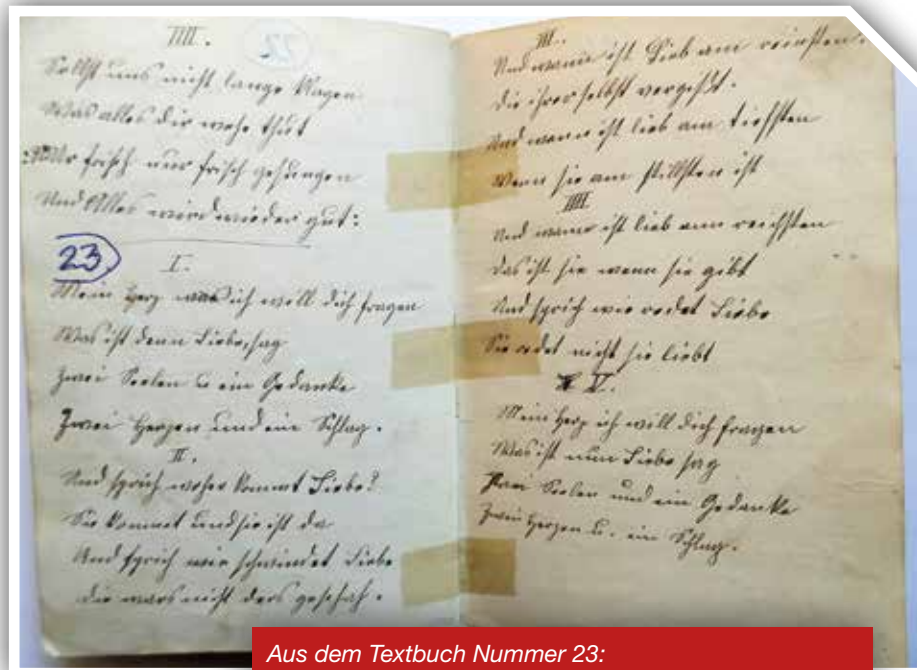 IIII.
22
Sollst uns nicht lange klagen
Was alles dir wehe thut
Nur frisch nur frisch gesungen
Und Alles wird wieder gut:
23
I.
Mein Herz was ich will dich fragen
Was ist denn Liebe, sag
Zwei Seelen u ein Gedanke
Zwei Herzen und ein Schlag.
II.
Und sprich woher kommt Liebe?
Sie kommet und sie ist da
Und sprich wie schwindet Liebe
die wars nicht ders geschah.
III.
Und wann ist Lieb am reinsten.
die ihrer selbst vergißt.
Und wann ist lieb am tiefsten
Wenn sie am stillsten ist
IIII
Und wann ist lieb am reichsten
das ist sie wenn sie gibt
Und sprich wie redet Liebe
Sie redet nicht sie liebt
V.
Mein Herz ich will dich fragen
Was ist nun Liebe sag
Seelen und ein Gedanke
Zwei Herzen u. ein Schlag.
Aus dem Textbuch Nummer 23: